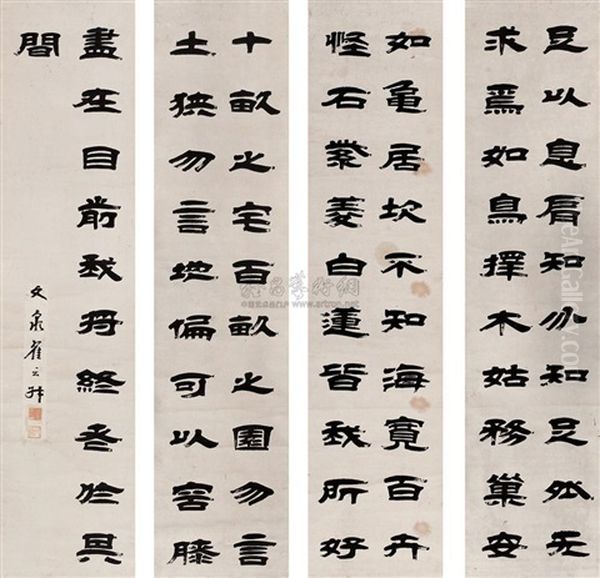 足以息肩知分知足然无
求焉如鳥擇木姑務巢安
如龜居坎不知海寬百卉
怪石紫菱白蓮皆我所好
十畝之宅百畝之園勿言
土狹勿言地偏可以容膝
盡在目前我將終老於其
間
文泉翟云升
雅昌藝術網
www.artron.net